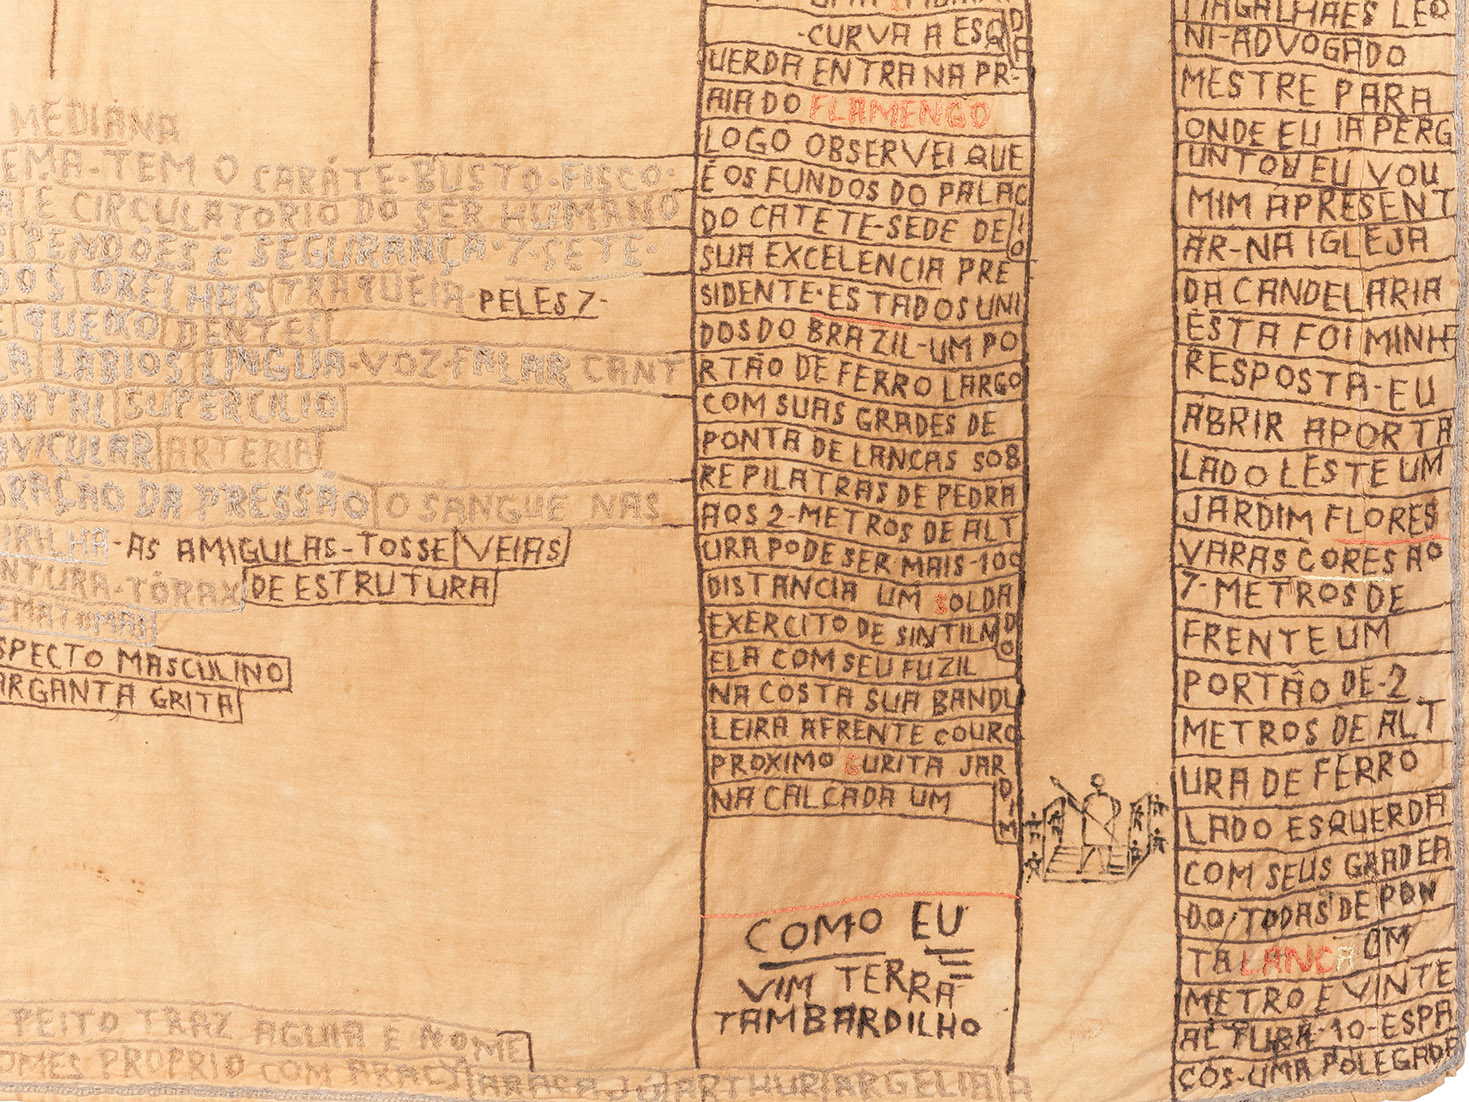 MEDIÁNA
EMA-TEM O CARÁTE-BUSTO-FISCO-
E CIRCULATORIO DO SER HUMANO
PENDÕES E SEGURANÇA-7-SETE-
DOS ORELHAS TRAQUÉIA-PELES 7-
E QUEIXO DENTE
LABIOS LINGUA-VOZ-FALAR CANT
ONTAL SUPERCILIO
AVICULAR ARTERIA
RAÇAO DA PRESSÃO O SANGUE NAS
IRILHA-AS AMIGULAS-TOSSE VEIAS
NTURA-TÓRAX DE ESTRUTURA
EMATOMAN
SPECTO MASCULINO
ARGANTA GRITA
PEITO TRAZ AGUIA E NOME
OMES PROPRIO COM ARACY ARACAJU ARTHUR ARGELIA A
-CURVA A ESQ
UERDA ENTRA NA PR-
AIA DO FLAMENGO
LOGO OBSERVEI QUE
É OS FUNDOS DO PALAC
IO
DO CATETE-SEDE DE
SUA EXCELENCIA PRE
SIDENTE-ESTADOS UNI
DOS DO BRAZIL-UM PO
RTÃO DE FERRO LARGO
COM SUAS GRADES DE
PONTA DE LANCAS SOB
RE PILATRAS DE PEDRA
AOS 2-METROS DE ALT
URA PODE SER MAIS-100
DISTANCIA UM SOLDA
DO
EXERCITO DE SINTILN
ELA COM SEU FUZIL
NA COSTA SUA BANDU
LEIRA AFRENTE COURO
PROXIMO GURITA JAR
DIM
NA CALÇADA UM
COMO EU
VIM TERRA
TAMBARDILHO
MAGALHÃES LEO
NI-ADVOGADO
MESTRE PARA
ONDE EU IA PERG
UNTOU EU VOU
MIM APRESENT
AR-NA IGLEJA
DA CANDELARIA
ESTA FOI MINH
RESPOSTA-EU
ABRIR APORTA
LADO LESTE UM
JARDIM FLORES
VARAS CORES AO
7-METROS DE
FRENTE UM
PORTÃO DE-2
METROS DE ALT
URA DE FERRO
LADO ESQUERDA
COM SEUS GRADEA
DO, TODAS DE PON
TA LANCA OM
METRO E VINTE
ALTURA-10-ESPA
COS-UMA POLEGADA